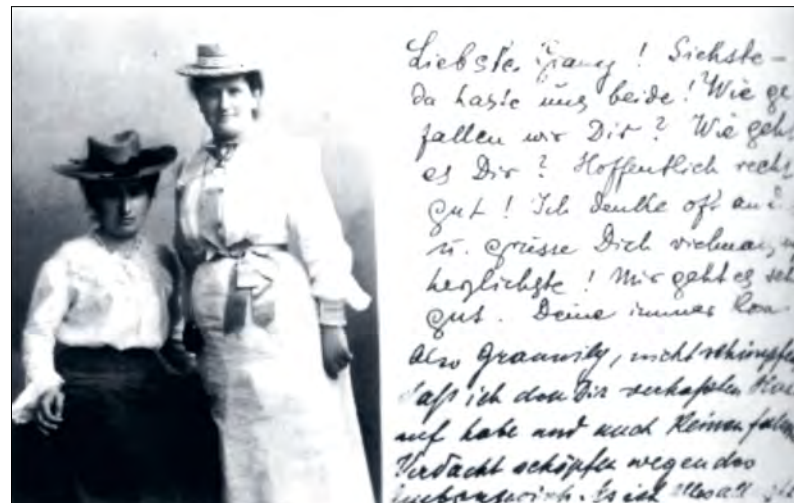 Liebste Grany! Siehste –
da haste uns beide! Wie ge
fallen wir Dir? Wie geht
es Dir? Hoffentlich recht
gut! Ich denke oft an
u. grüsse Dich vielmal
herzlichste! Mir geht es seh
gut. Deine immer
Also Grannily, nicht schimpfen
daß ich den Dir verhaßten
auf habe und auch keinen
Verdacht schöpfen wegen des
Es ist